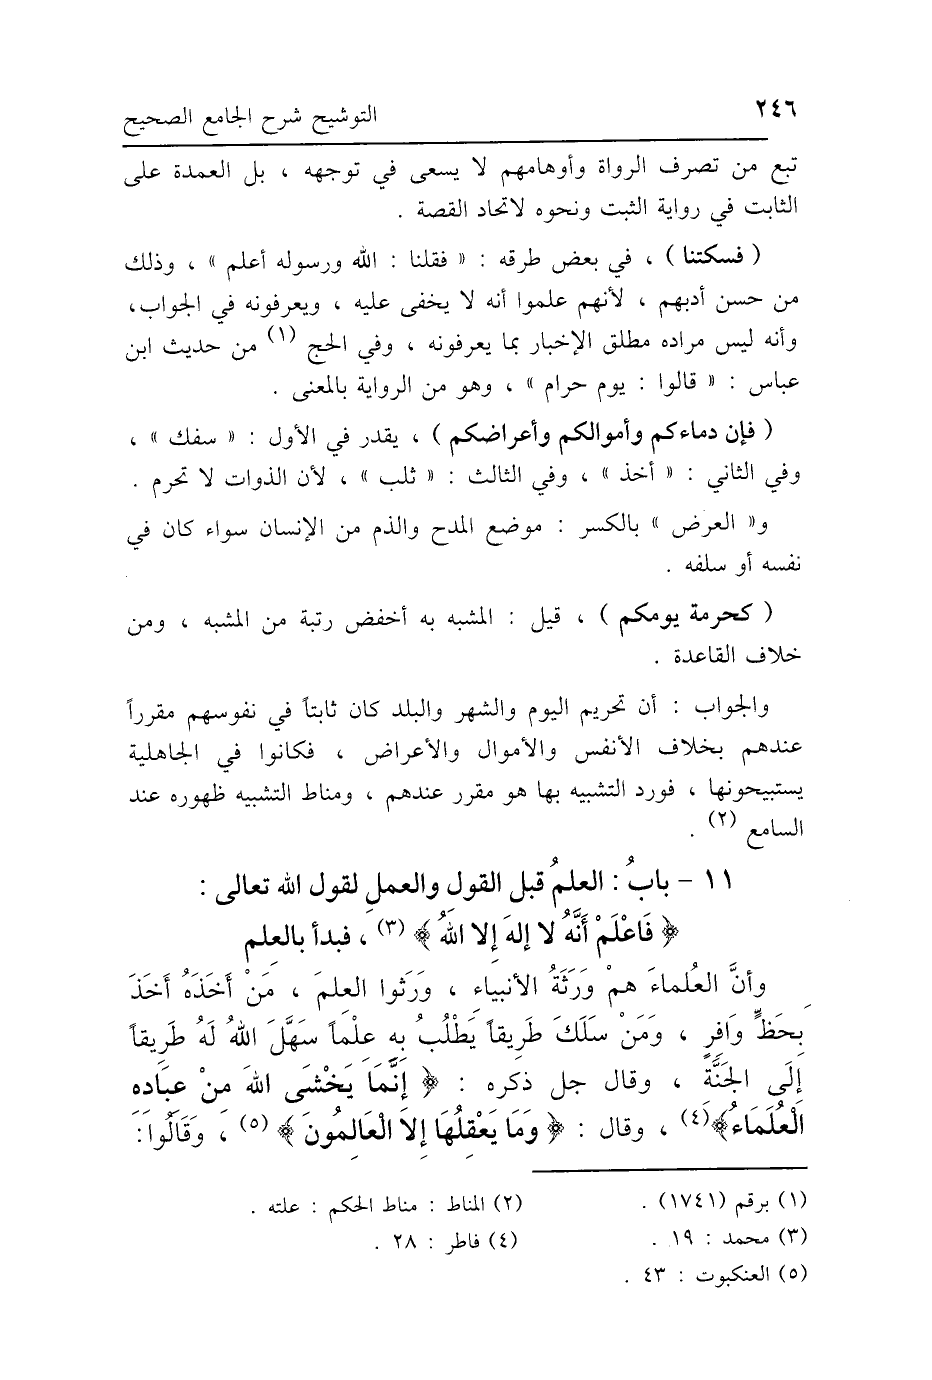 ٢٤٦
التوشيح شرح الجامع الصحيح
تبع من تصرف الرواة وأوهامهم لا يسعى في توجهه ، بل العمدة على
الثابت في رواية الثبت ونحوه لاتحاد القصة .
( فسكتنا ) ، في بعض طرقه : « فقلنا : الله ورسوله أعلم » ، وذلك
من حسن أدبهم ، لأنهم علموا أنه لا يخفى عليه ، ويعرفونه في الجواب،
وأنه ليس مراده مطلق الإخبار بما يعرفونه ، وفي الحج (١) من حديث ابن
عباس : « قالوا : يوم حرام » ، وهو من الرواية بالمعنى .
( فإن دماءكم وأموالكم وأعراضكم ) ، يقدر في الأول : « سفك » ،
وفي الثاني : « أخذ » ، وفي الثالث : « ثلب » ، لأن الذوات لا تحرم .
و« العرض » بالكسر : موضع المدح والذم من الإنسان سواء كان في
نفسه أو سلفه .
( كحرمة يومكم ) ، قيل : المشبه به أخفض رتبة من المشبه ، ومن
خلاف القاعدة .
والجواب : أن تحريم اليوم والشهر والبلد كان ثابتاً في نفوسهم مقرراً
عندهم بخلاف الأنفس والأموال والأعراض ، فكانوا في الجاهلية
يستبيحونها ، فورد التشبيه بها هو مقرر عندهم ، ومناط التشبيه ظهوره عند
السامع (٢) .
١١ - بابُ : العلمُ قبل القول والعملِ لقول الله تعالى :
﴿ فَاعْلَمْ أَنَّهُ لا إلهَ إلا اللهُ ﴾ (٣) ، فبدأ بالعلمِ
وأنَّ العُلماءَ همْ وَرَثَةُ الأنبياءِ ، وَرَثوا العلمَ ، مَنْ أَخَذَهُ أَخَذَ
بِحَظٍّ وَافِرٍ ، وَمَنْ سَلَكَ طَرِيقاً يَطْلُبُ بِهِ عِلْماً سَهَّلَ اللهُ لَهُ طَرِيقاً
إلَى الجَنَّةِ ، وقال جل ذكره : ﴿ إنَّمَا يَخْشَى اللهَ مِنْ عِبَادِهِ
الْعُلَمَاءُ﴾(٤) ، وقال : ﴿ وَمَا يَعْقِلُهَا إِلاَ الْعَالِمُونَ ﴾ (٥) ، وَقَالُوا:
(١) برقم (١٧٤١) .
(٢) المناط : مناط الحكم : علته .
(٣) محمد : ١٩ .
(٤) فاطر : ٢٨ .
(٥) العنكبوت : ٤٣ .